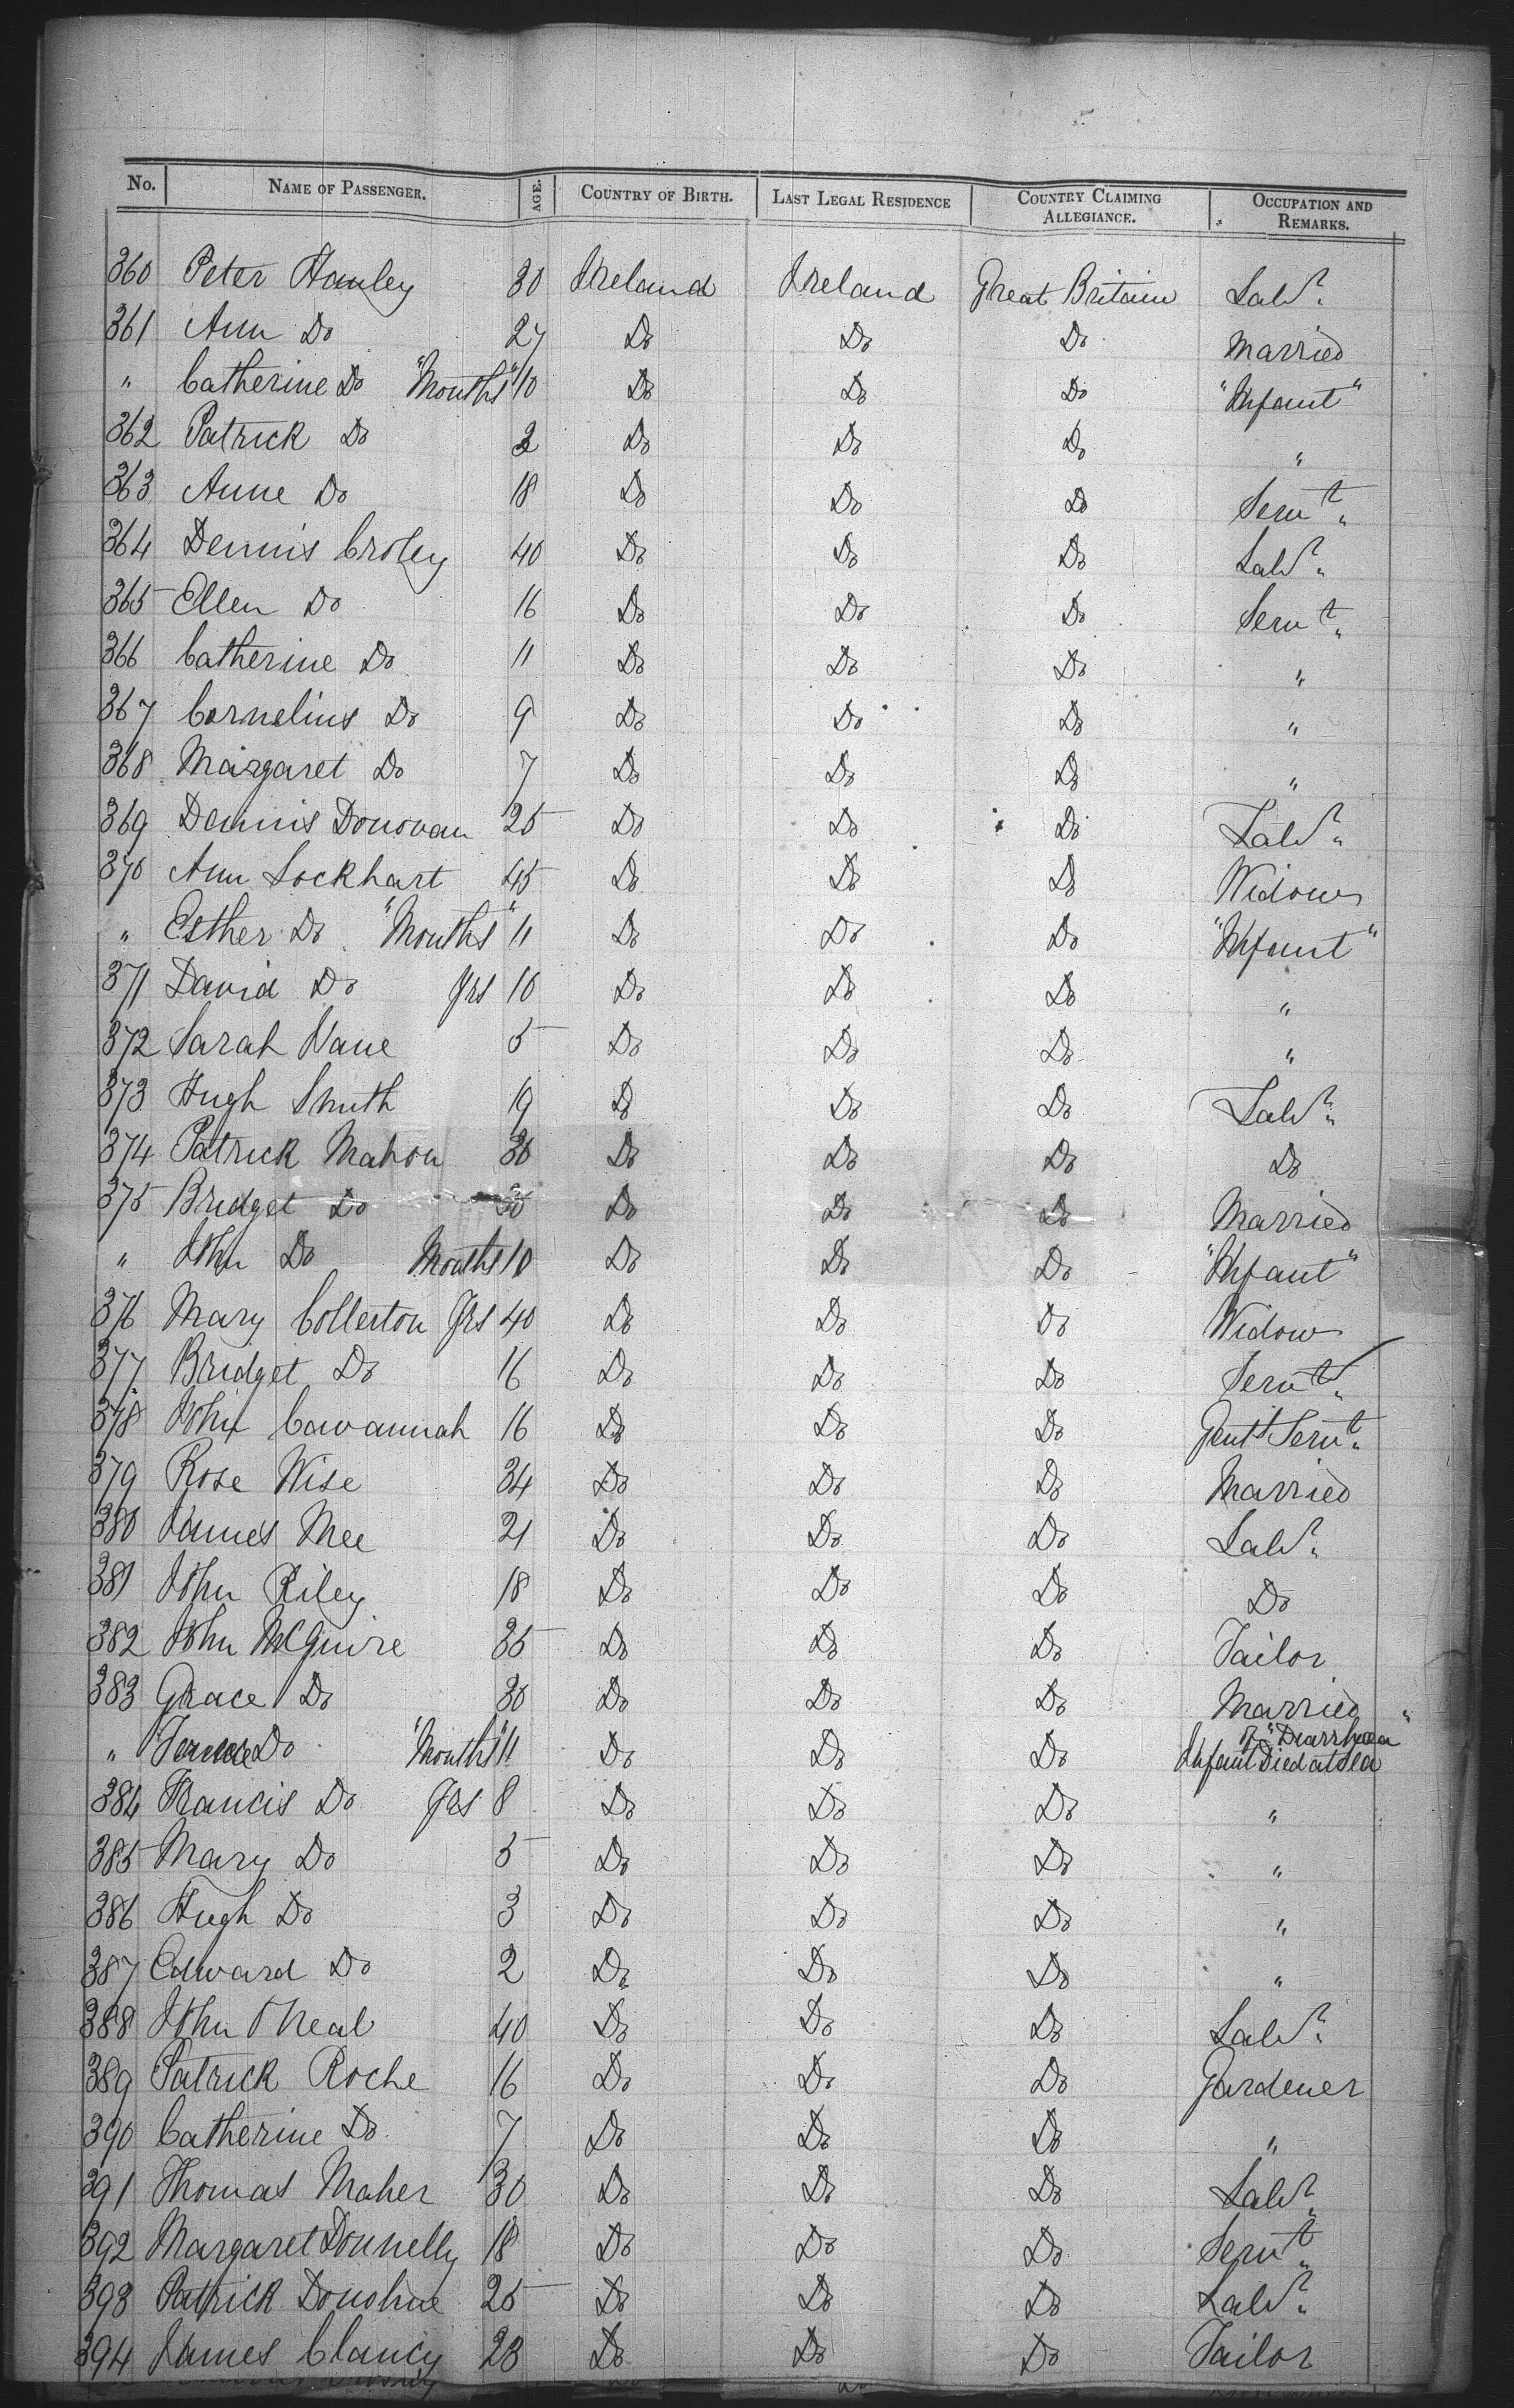 No. NAME OF PASSENGER. AGE. COUNTRY OF BIRTH. LAST LEGAL RESIDENCE COUNTRY CLAIMING ALLEGIANCE. OCCUPATION AND REMARKS.
360 Peter Hanley 30 Ireland Ireland Great Britain Labr.
361 Ann Do 27 Do Do Do Married
" Catherine Do "Months" 10 Do Do Do "Infant"
362 Patrick Do 2 Do Do Do "
363 Anne Do 18 Do Do Do Servt.
364 Dennis Croley 40 Do Do Do Labr.
365 Ellen Do 16 Do Do Do Servt.
366 Catherine Do 11 Do Do Do "
367 Cornelius Do 9 Do Do Do "
368 Margaret Do 7 Do Do Do "
369 Dennis Donovan 25 Do Do Do Labr.
370 Ann Lockhart 45 Do Do Do Widow
" Esther Do "Months" 11 Do Do Do "Infant"
371 David Do Yrs 10 Do Do Do "
372 Sarah Jane 5 Do Do Do "
373 Hugh Smith 19 Do Do Do Labr.
374 Patrick Mahon 30 Do Do Do Do
375 Bridget Do 30 Do Do Do Married
" John Do Months 10 Do Do Do "Infant"
376 Mary Collerton Yrs 40 Do Do Do Widow
377 Bridget Do 16 Do Do Do Servt.
378 John Cavannah 16 Do Do Do Gent Servt.
379 Rose Wise 34 Do Do Do Married
380 James Mee 21 Do Do Do Labr.
381 John Riley 18 Do Do Do Do
382 John McGuire 35 Do Do Do Tailor
383 Grace Do 30 Do Do Do Married
" Do "Months" 11 Do Do Do Infant Died at Sea of "Diarrhoea"
384 Francis Do Yrs 8 Do Do Do "
385 Mary Do 5 Do Do Do "
386 Hugh Do 3 Do Do Do "
387 Edward Do 2 Do Do Do "
388 John O'Neal 40 Do Do Do Labr.
389 Patrick Roche 16 Do Do Do Gardener
390 Catherine Do 7 Do Do Do "
391 Thomas Maher 30 Do Do Do Labr.
392 Margaret Donnelly 18 Do Do Do Servt.
393 Patrick Donohue 25 Do Do Do Labr.
394 James Clancy 23 Do Do Do Tailor